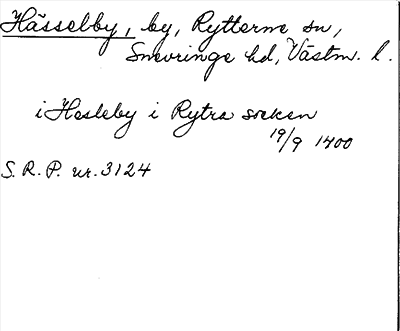 Hässelby, by, Rytterne sn,
Snevringe hd, Västm. l.
i Hesleby i Rytra soeken
19/9 1400
S. R. P. nr. 3124